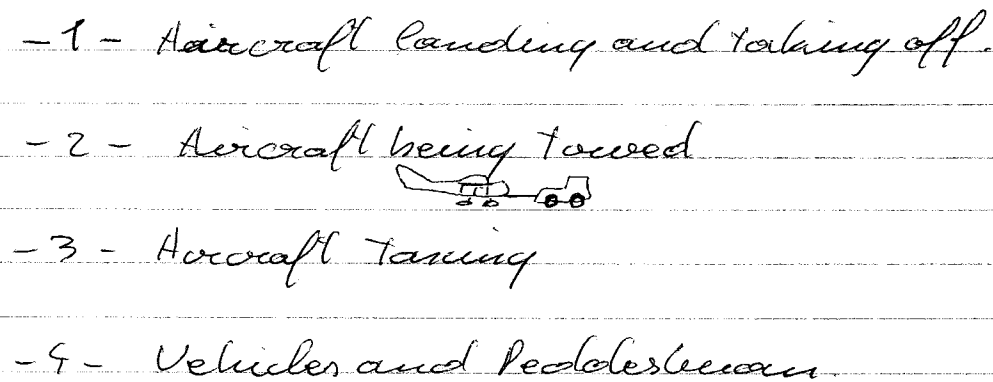 -1- Aaircraft landing and taking off.
-2- Aircraft being towed
-3- Aircraft Taxiing
-4- Vehicles and